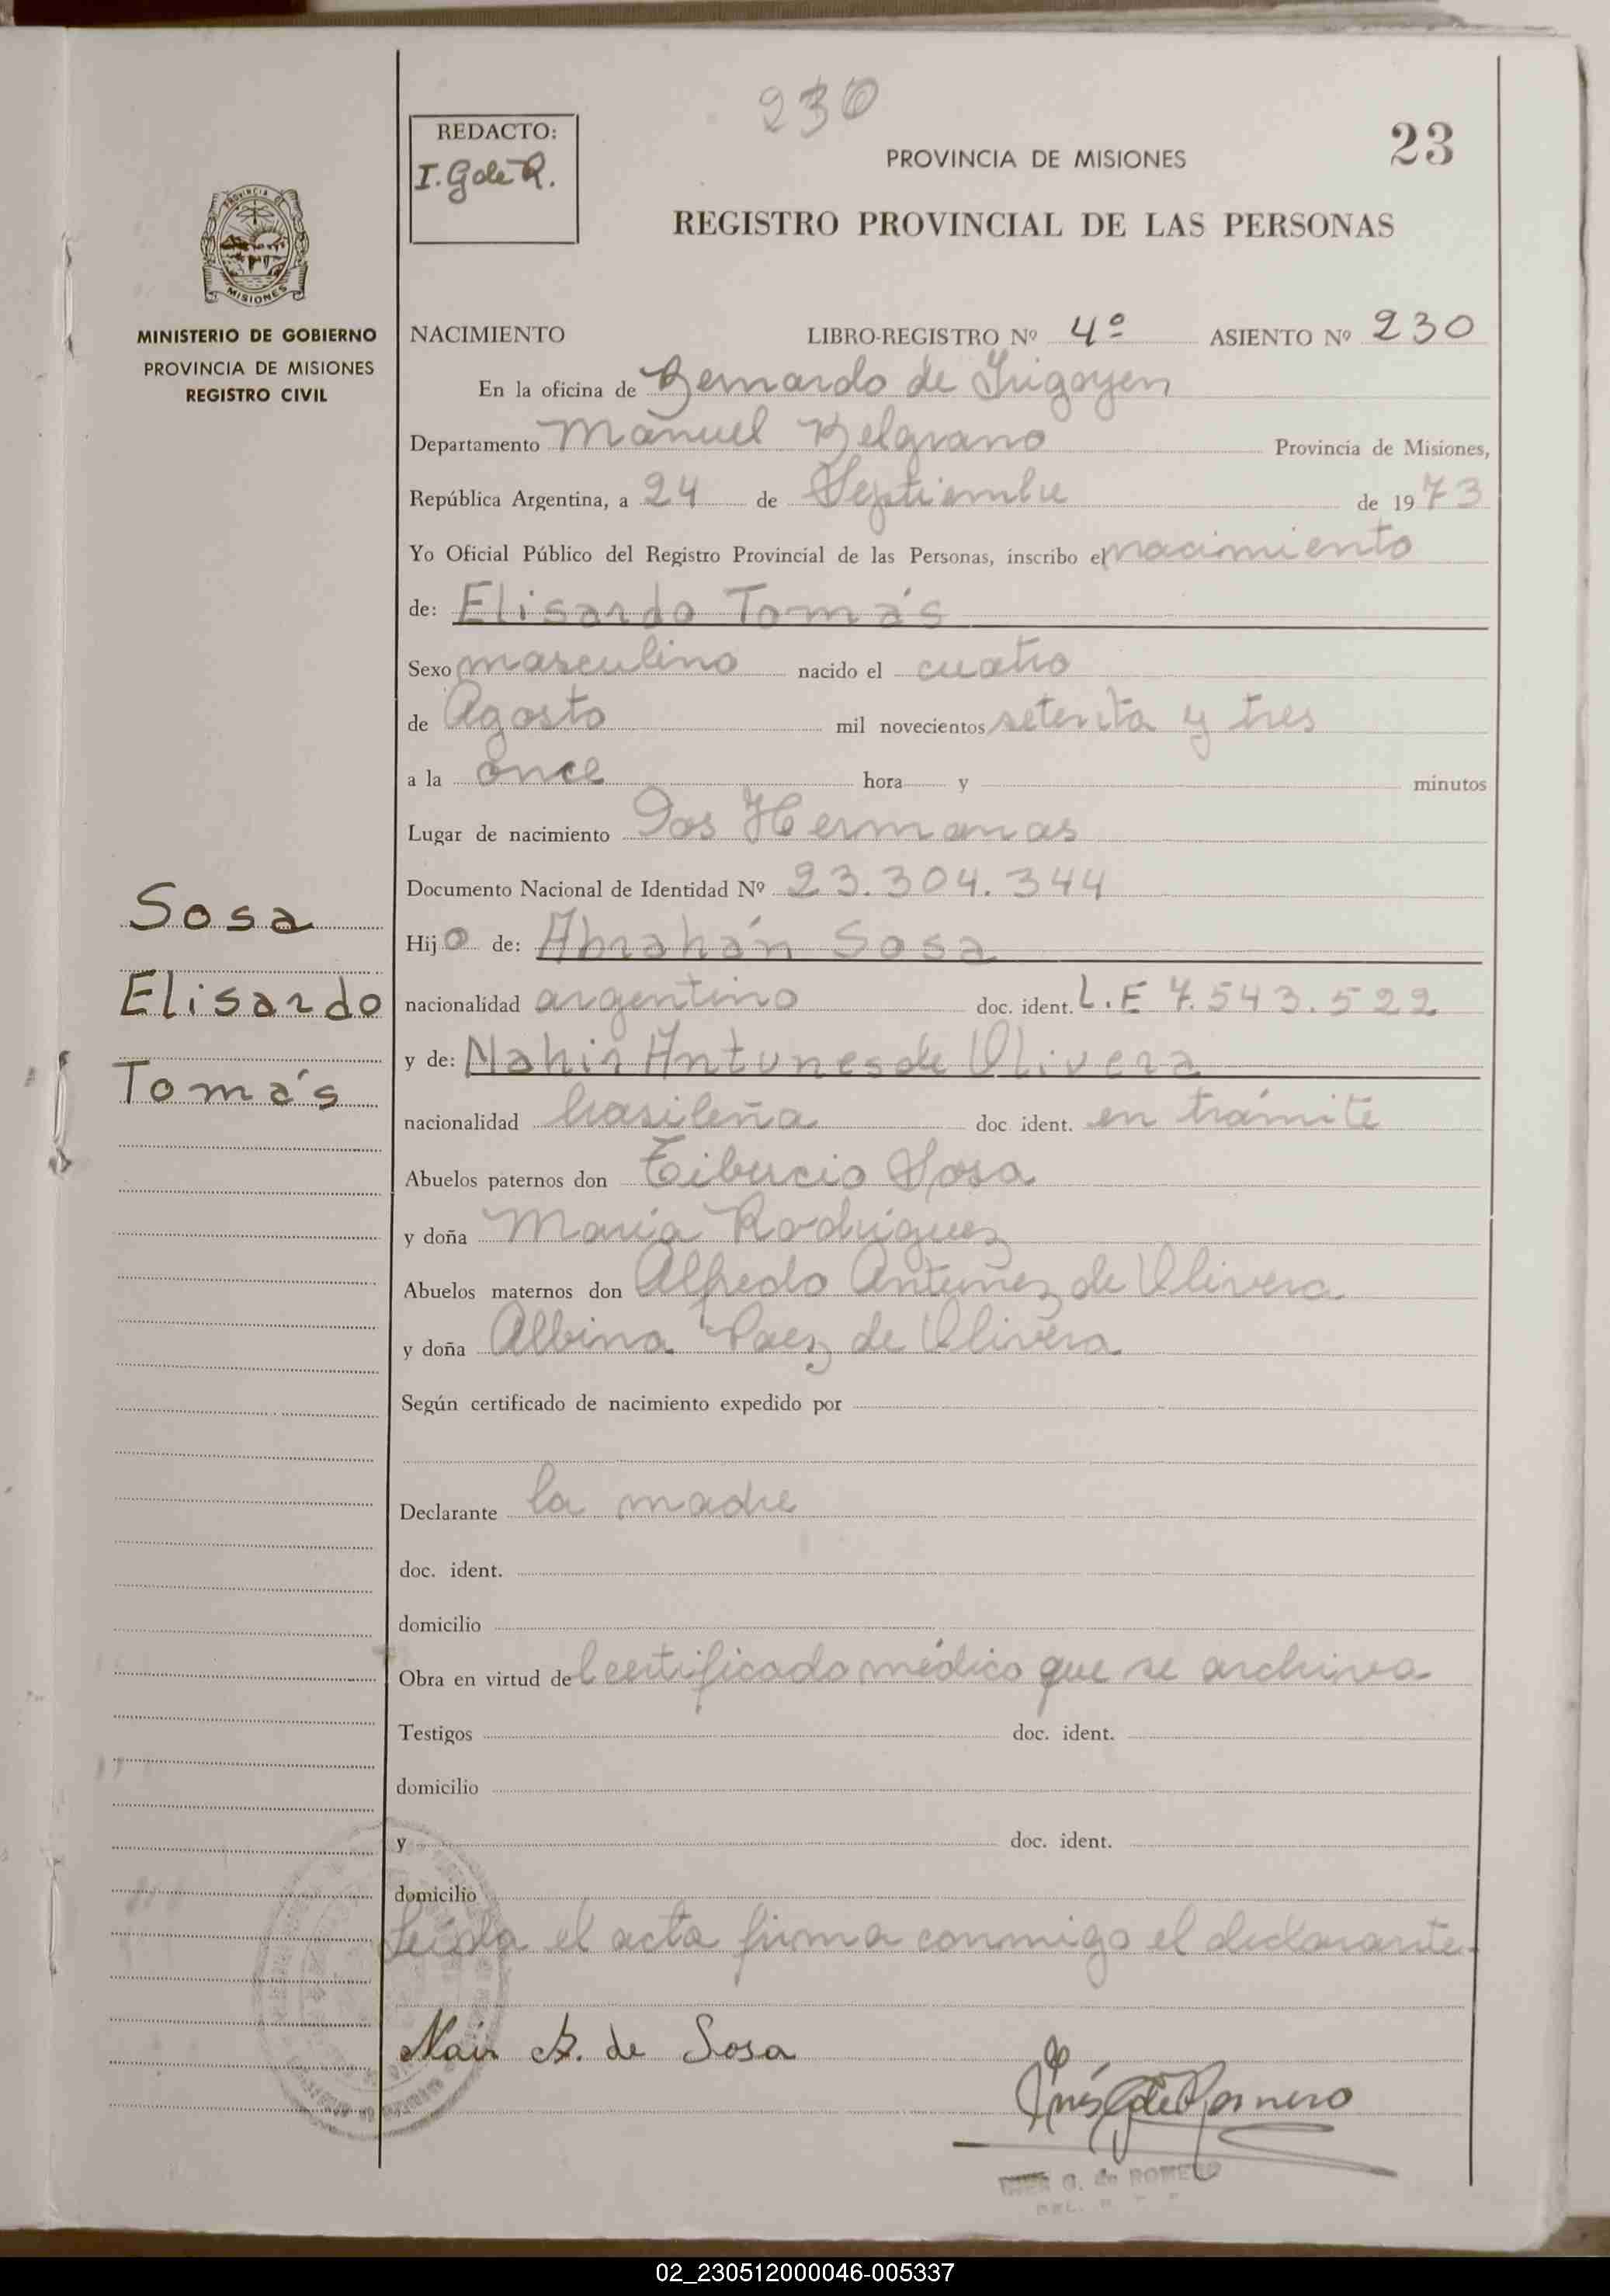 230
REDACTO:
I. G de R.
PROVINCIA DE MISIONES
23
REGISTRO PROVINCIAL DE LAS PERSONAS
PROVINCIA DE
MISIONES
MINISTERIO DE GOBIERNO
PROVINCIA DE MISIONES
REGISTRO CIVIL
NACIMIENTO LIBRO-REGISTRO Nº 4º ASIENTO Nº 230
En la oficina de Bernardo de Irigoyen
Departamento Manuel Belgrano Provincia de Misiones,
República Argentina, a 24 de Septiembre de 1973
Yo Oficial Público del Registro Provincial de las Personas, inscribo el nacimiento
de: Elisardo Tomás
Sexo masculino nacido el cuatro
de Agosto mil novecientos setenta y tres
a la once hora y minutos
Lugar de nacimiento Dos Hermanas
Documento Nacional de Identidad Nº 23.304.344
Sosa
Elisardo
Tomás
Hijo de: Abrahán Sosa
nacionalidad argentino doc. ident. L.E 7.543.522
y de: Nahir Antunes de Olivera
nacionalidad brasileña doc ident. en trámite
Abuelos paternos don Tiburcio Sosa
y doña María Rodriguez
Abuelos maternos don Alfredo Antunez de Olivera
y doña Albina Paez de Olivera
Según certificado de nacimiento expedido por
Declarante la madre
doc. ident.
domicilio
Obra en virtud del certificado médico que se archiva
Testigos doc. ident.
domicilio
y doc. ident.
domicilio
Leída el acta firma conmigo el declarante.
Nair A. de Sosa
Inés G de Romero
INES G. de ROMERO
02_230512000046-005337